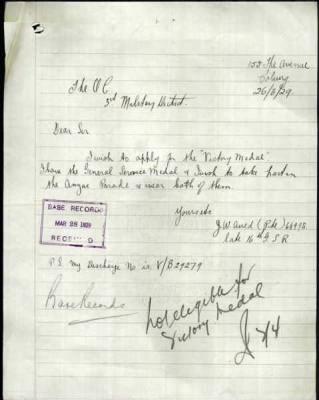 The Avenue
26/3/29.
The OC
3rd Military District.
Dear Sir
I wish to apply for the "Victory Medal"
I have the General Service Medal & I wish to take part in
the Anzac Parade & wear both of them.
Yours etc
J W (Pte)
late 16th
BASE RECORDS
MAR 28 1929
RECEIVED
P.S. my Discharge No is V/B29279
Base Records
not eligible for
Victory medal